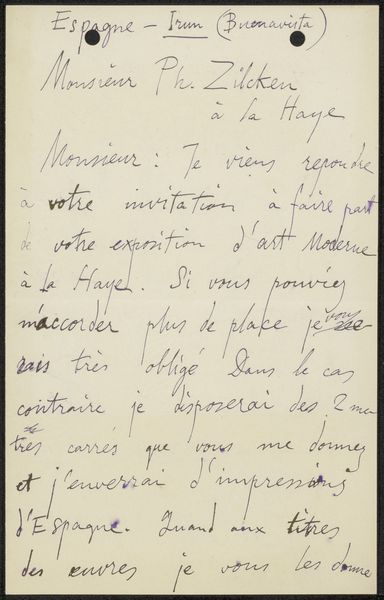 Espagne - Irun (Buenavista)
Monsieur Ph. Zilcken
à la Haye
Monsieur : Je viens repondre
à votre invitation à faire part
de votre exposition d'art Moderne
à la Haye. Si vous pouviez
m'accorder plus de place je vous se
rais très obligé Dans le cas
contraire je disposerai des 2 me
tres carrés que vous me donnez
et j'enverrai d'impressions
d'Espagne. Quand aux titres
des œuvres je vous les donne